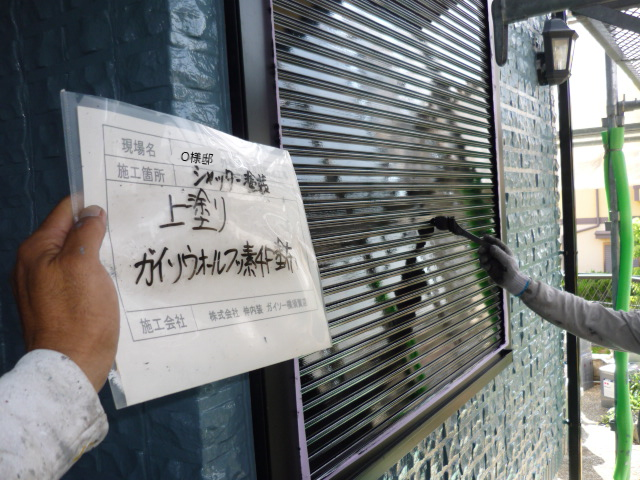 現場名 O様邸
施工箇所 シャッター塗装
上塗り
ガイソウォールフッ素4F
施工会社 株式会社 伸内装 ガイソー